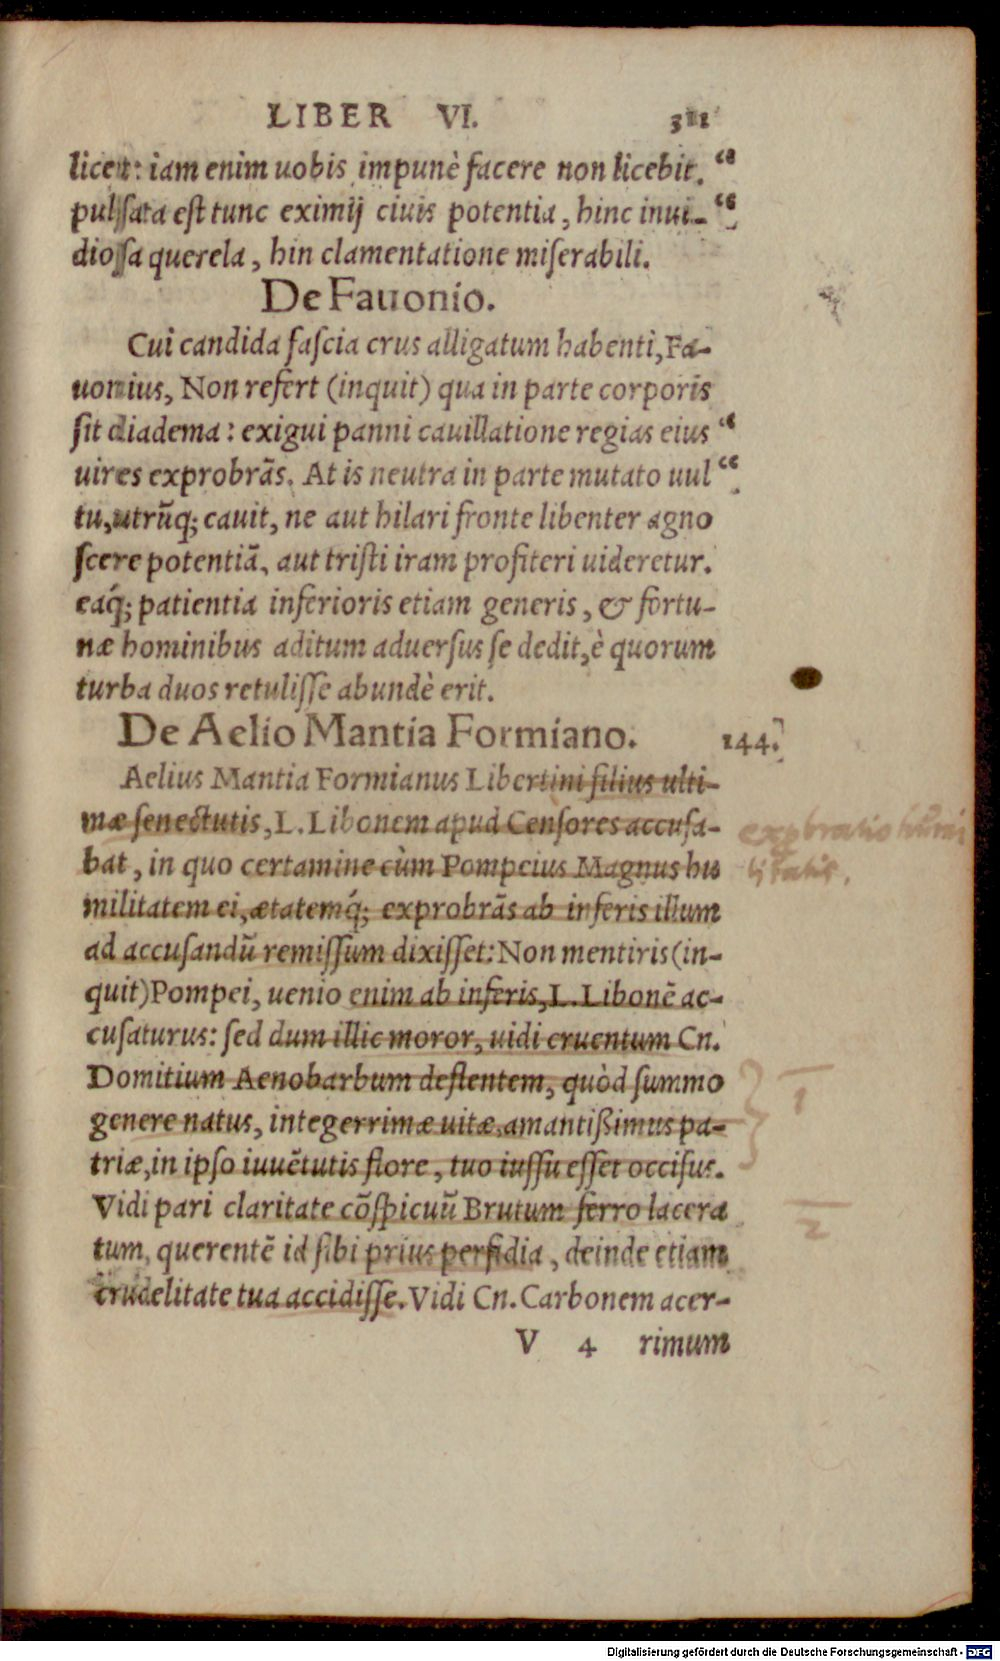 LIBER VI. 311
licet: iam enim uobis impunè facere non licebit. “
pulsata est tunc eximij ciuis potentia, hinc inui- “
diosa querela, hin clamentatione miserabili.
De Fauonio.
Cui candida fascia crus alligatum habenti, Fa-
uonius, Non refert (inquit) qua in parte corporis
sit diadema: exigui panni cauillatione regias eius “
uires exprobrãs. At is neutra in parte mutato uul “
tu, utrũq; cauit, ne aut hilari fronte libenter agno
scere potentiã, aut tristi iram profiteri uideretur.
eaq́; patientia inferioris etiam generis, & fortu-
næ hominibus aditum aduersus se dedit, è quorum
turba duos retulisse abundè erit.
De Aelio Mantia Formiano. 144.
Aelius Mantia Formianus Libertini filius ulti-
mæ senectutis, L. Libonem apud Censores accusa-
bat, in quo certamine cùm Pompeius Magnus hu
militatem ei, ætatemq́; exprobrãs ab inferis illum
ad accusandũ remissum dixisset: Non mentiris (in-
quit) Pompei, uenio enim ab inferis, L. Libonẽ ac-
cusaturus: sed dum illic moror, uidi cruentum Cn.
Domitium Aenobarbum deflentem, quòd summo
genere natus, integerrimæ uitæ, amantißimus pa-
triæ, in ipso iuuẽtutis flore, tuo iussu esset occisus.
Vidi pari claritate cõspicuũ Brutum ferro lacera
tum, querentẽ id sibi prius perfidia, deinde etiam
crudelitate tua accidisse. Vidi Cn. Carbonem acer-
V 4 rimum
exprobratio humi
litatis.
1
2
Digitalisierung gefördert durch die Deutsche Forschungsgemeinschaft - DFG